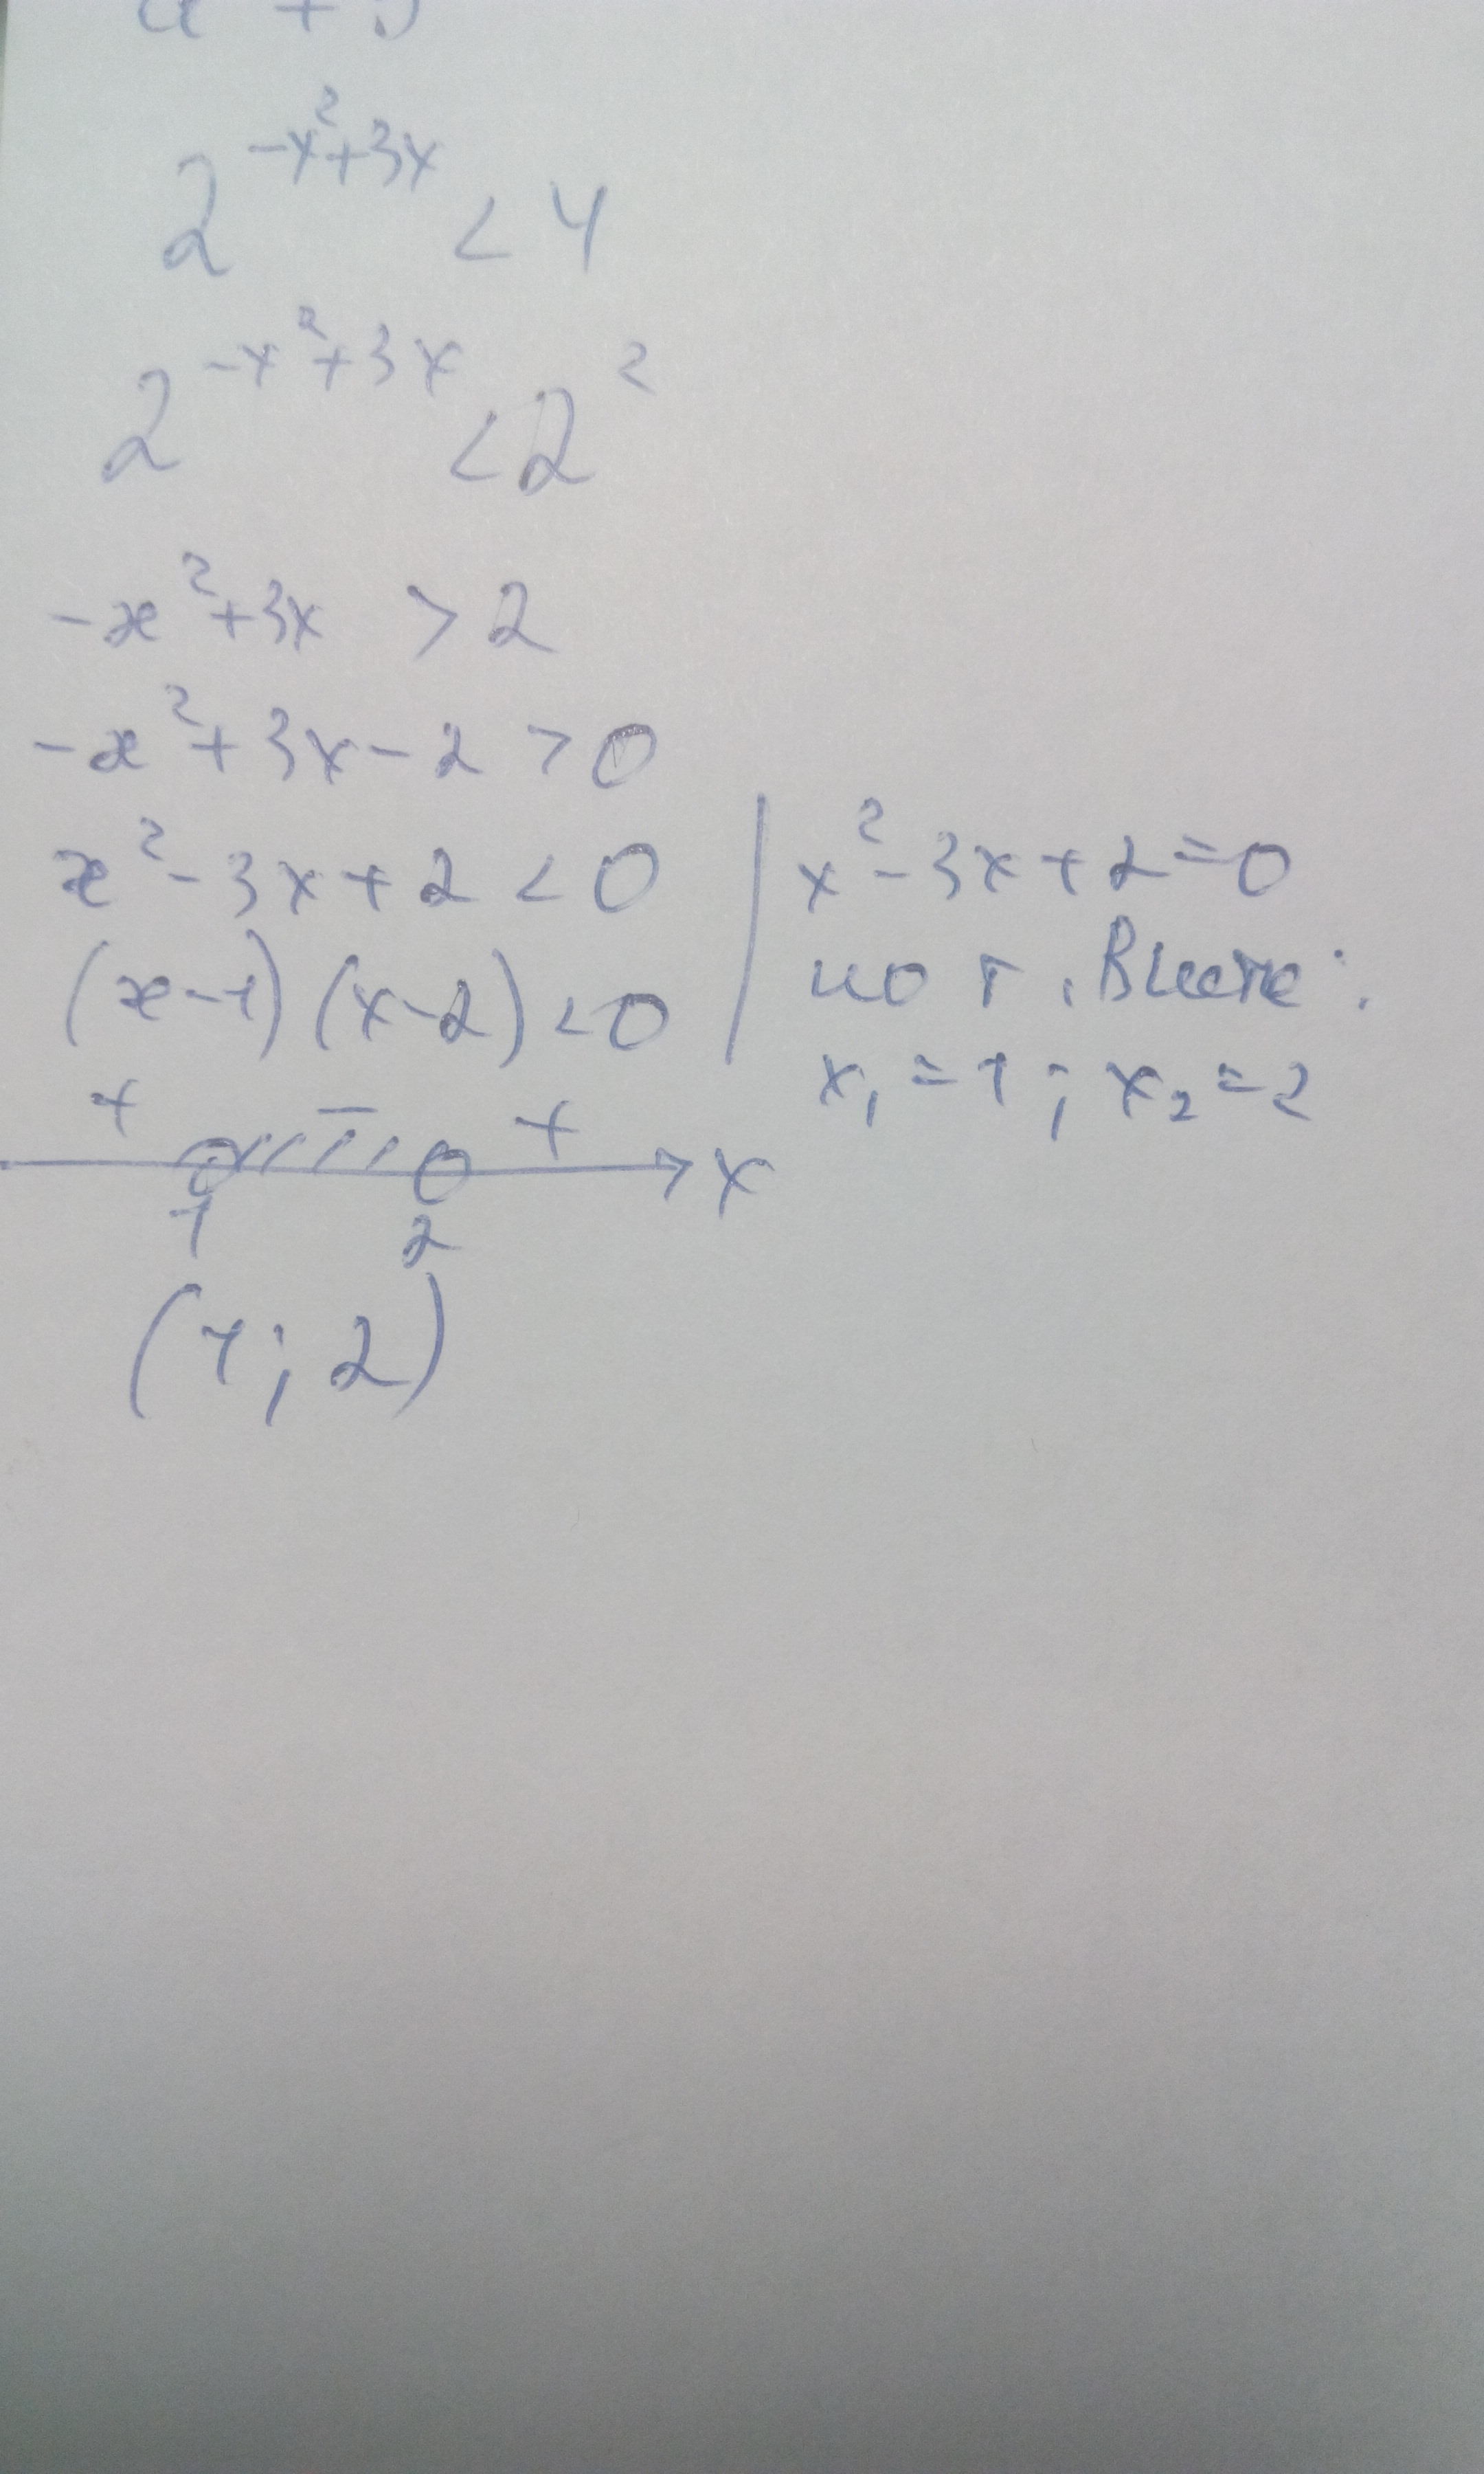 2^(-x²+3x) < 4
2^(-x²+3x) < 2²
-x²+3x > 2
-x²+3x-2 > 0
x²-3x+2 < 0
(x-1)(x-2) < 0
x²-3x+2=0
по т. Виета:
x₁=1; x₂=2
+ - +
1 2 x
(1; 2)